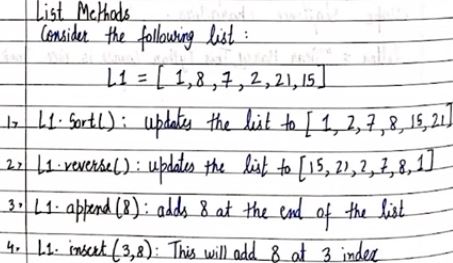 List Methods
Consider the following list :
L1 = [ 1,8,7,2,21,15]
1> L1.sort(): updates the list to [ 1,2,7,8,15,21]
2> L1.reverse(): updates the list to [15,21,2,7,8,1]
3> L1.append(8): adds 8 at the end of the list
4. L1. insert (3,8): This will add 8 at 3 index